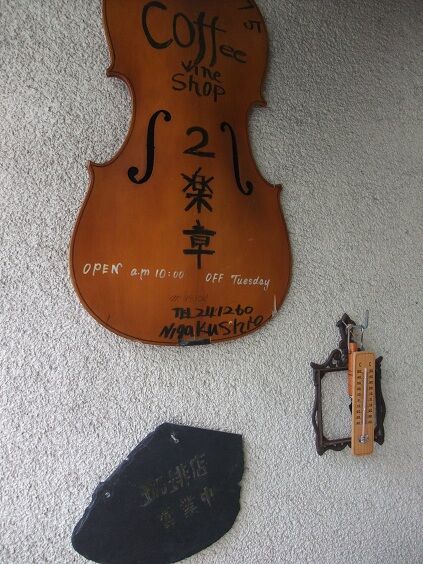 Coffee
vine
shop
2
楽
章
OPEN a.m 10:00 OFF Tuesday
TEL 241260
Nigakushio